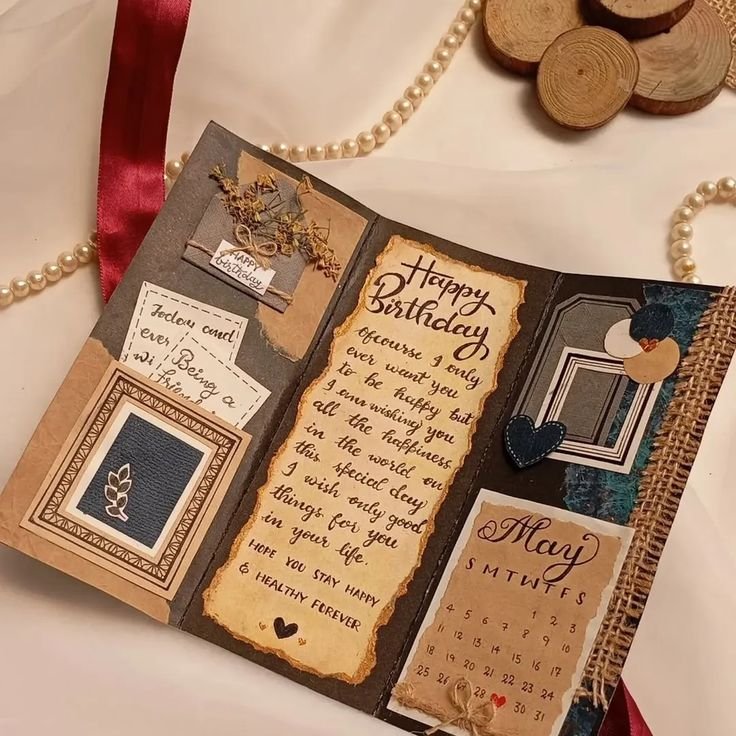 HAPPY
birthday
Today and
ever
Being a
Happy
Birthday
ofcourse I only
ever want you
to be happy but
I am wishing you
all the happiness
in the world on
this special day
I wish only good
things for you
in your life.
HOPE YOU STAY HAPPY
& HEALTHY FOREVER
May
S M T W T F S
1 2 3
4 5 6 7 8 9 10
11 12 13 14 15 16 17
18 19 20 21 22 23 24
25 26 27 28 30 31